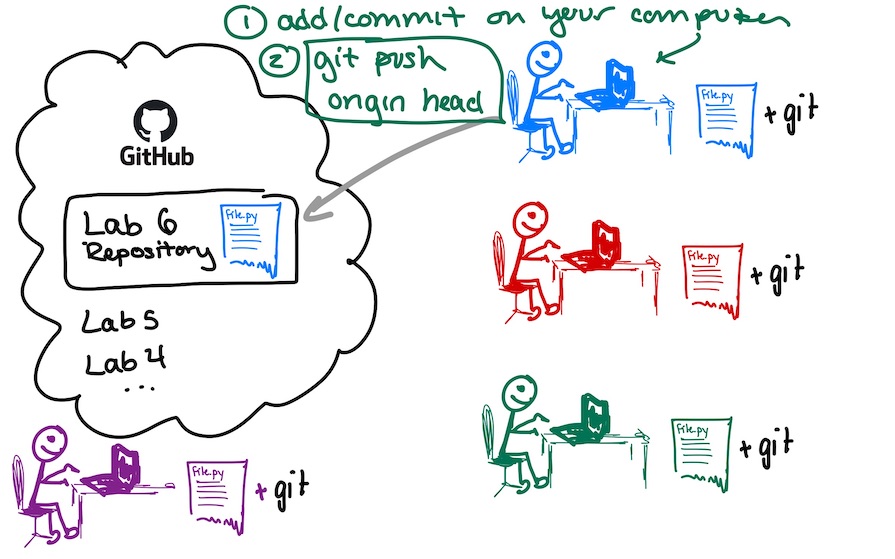 ① add/commit on your computer
② git push
origin head
GitHub
Lab 6
Repository
File.py
Lab 5
Lab 4
...
File.py
+ git
File.py
+ git
File.py
+ git
File.py
+ git